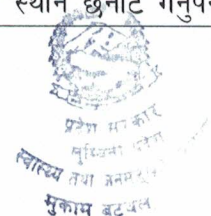 स्थान छनौट गर्नुपर्
प्रदेश सरकार
लुम्बिनी प्रदेश
स्वास्थ्य तथा जनसंख्या
मुकाम बुटवल